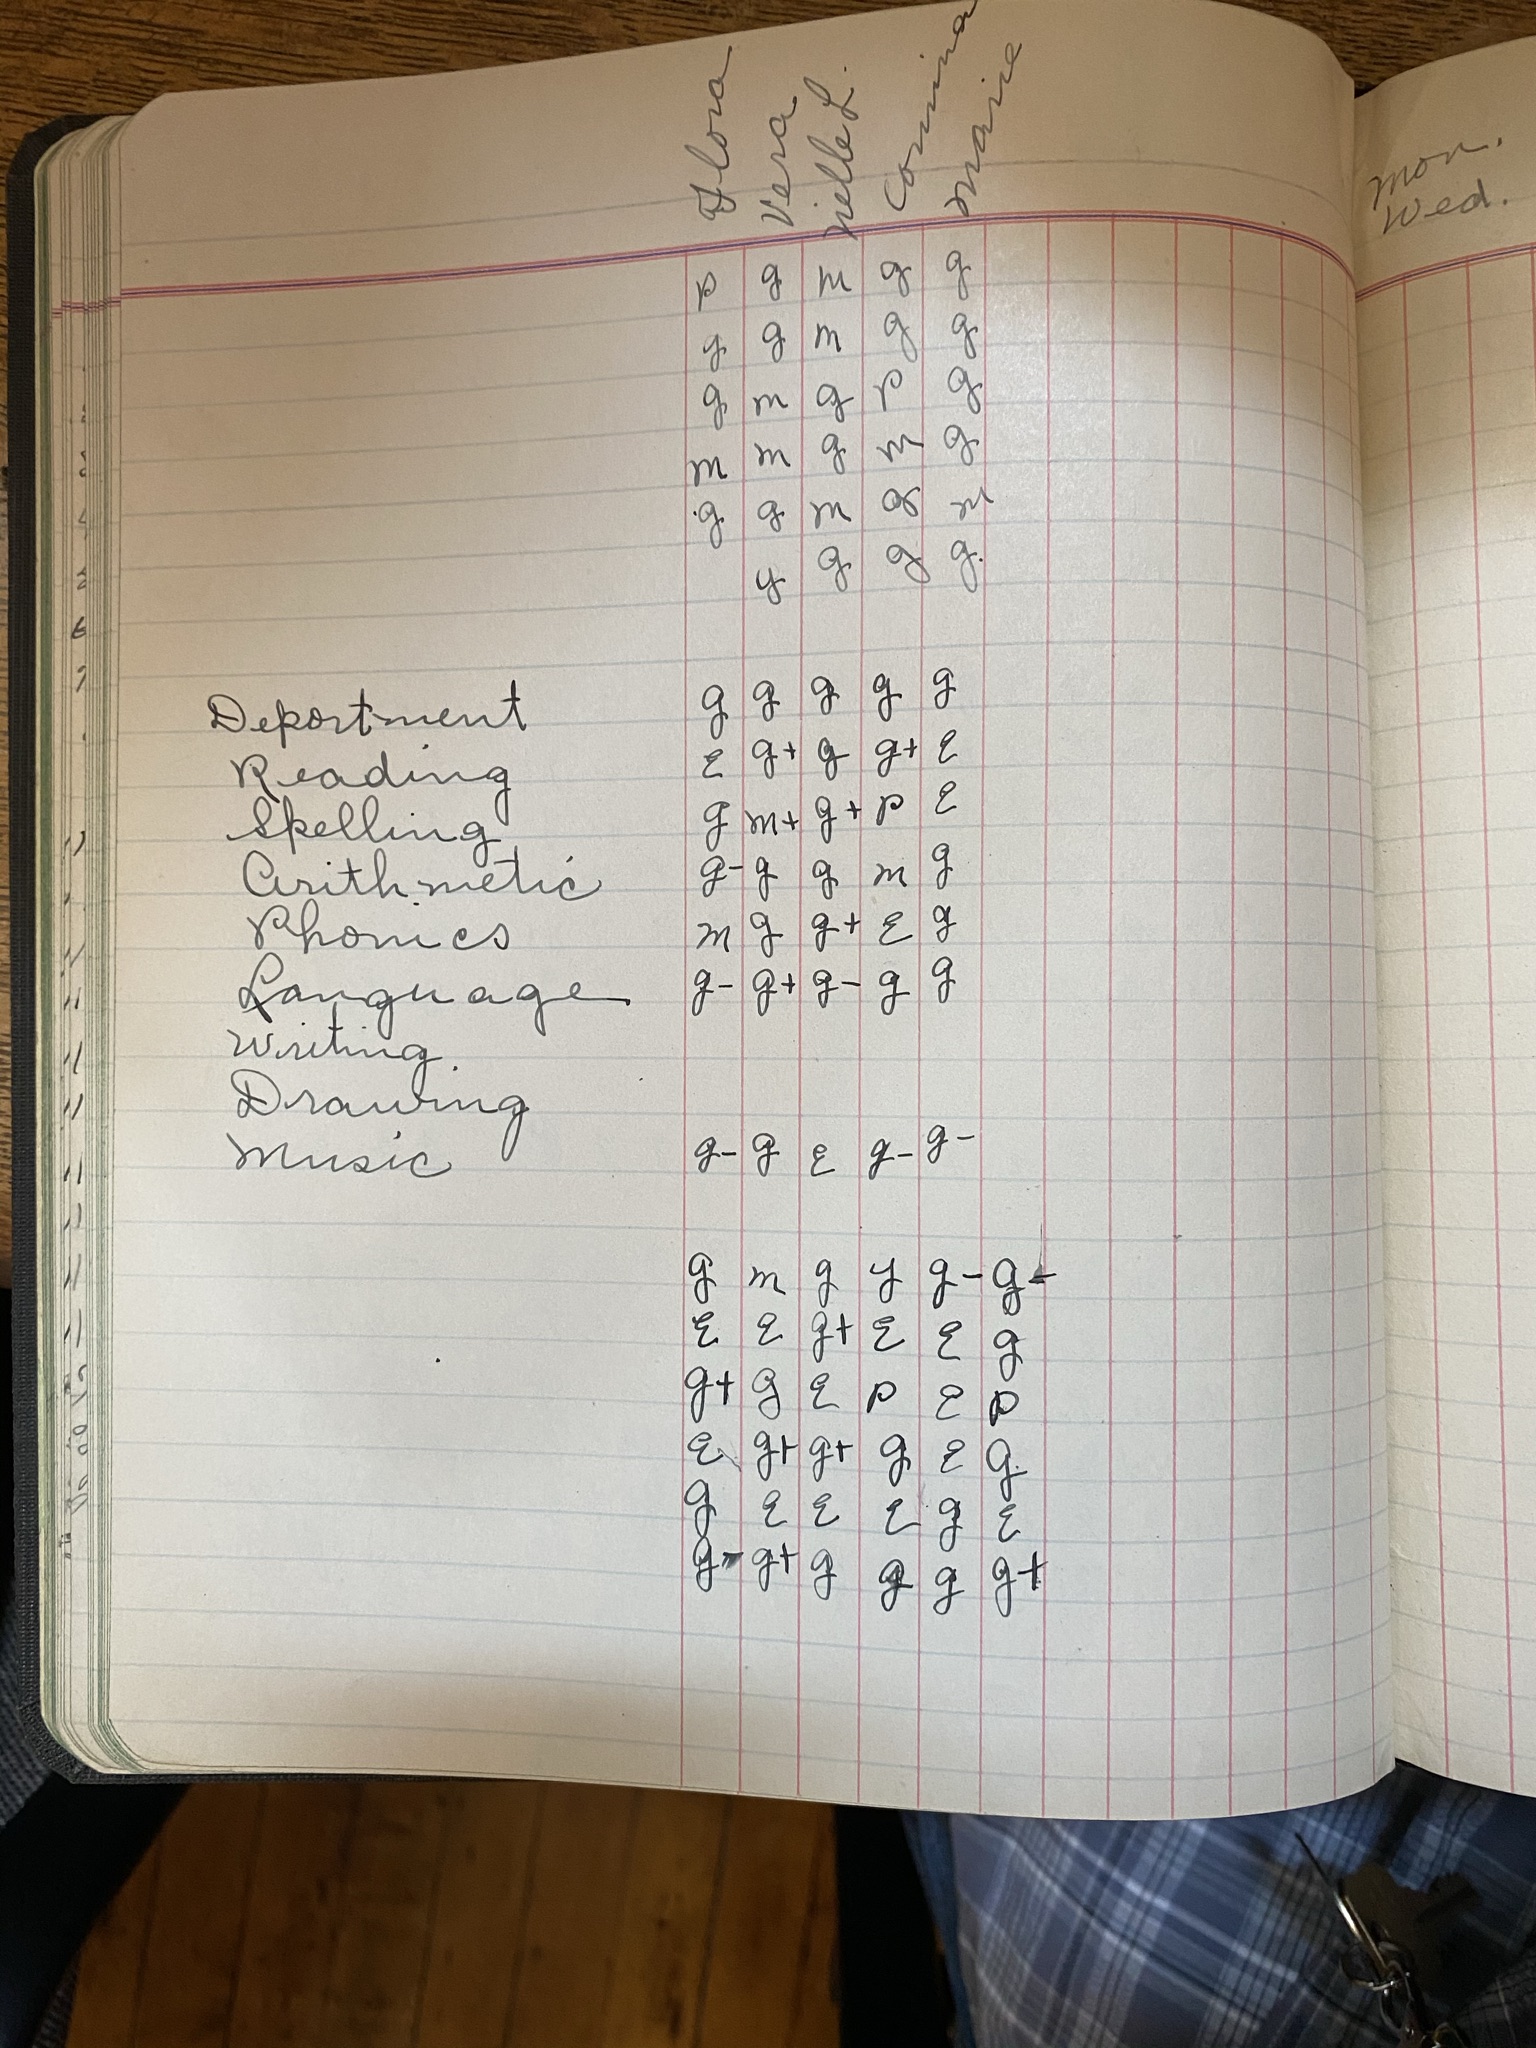 Flora Vera Nelle L. Corrina Marie
p g m g g
y g m g g
g m g p g
m m g m g
g g m g m
y g g g.
Deportment g g g g g
Reading E g+ g g+ E
Spelling g m+ g+ p E
Arithmetic g- g g m g
Phonics m g g+ E g
Language g- g+ g- g g
Writing
Drawing
Music g- g E g- g-
g m g y g- g-
E E g+ E E g
g+ g E p E p
E g+ g+ g E g
g E E E g E
g- g+ g g g g+
Mon.
Wed.